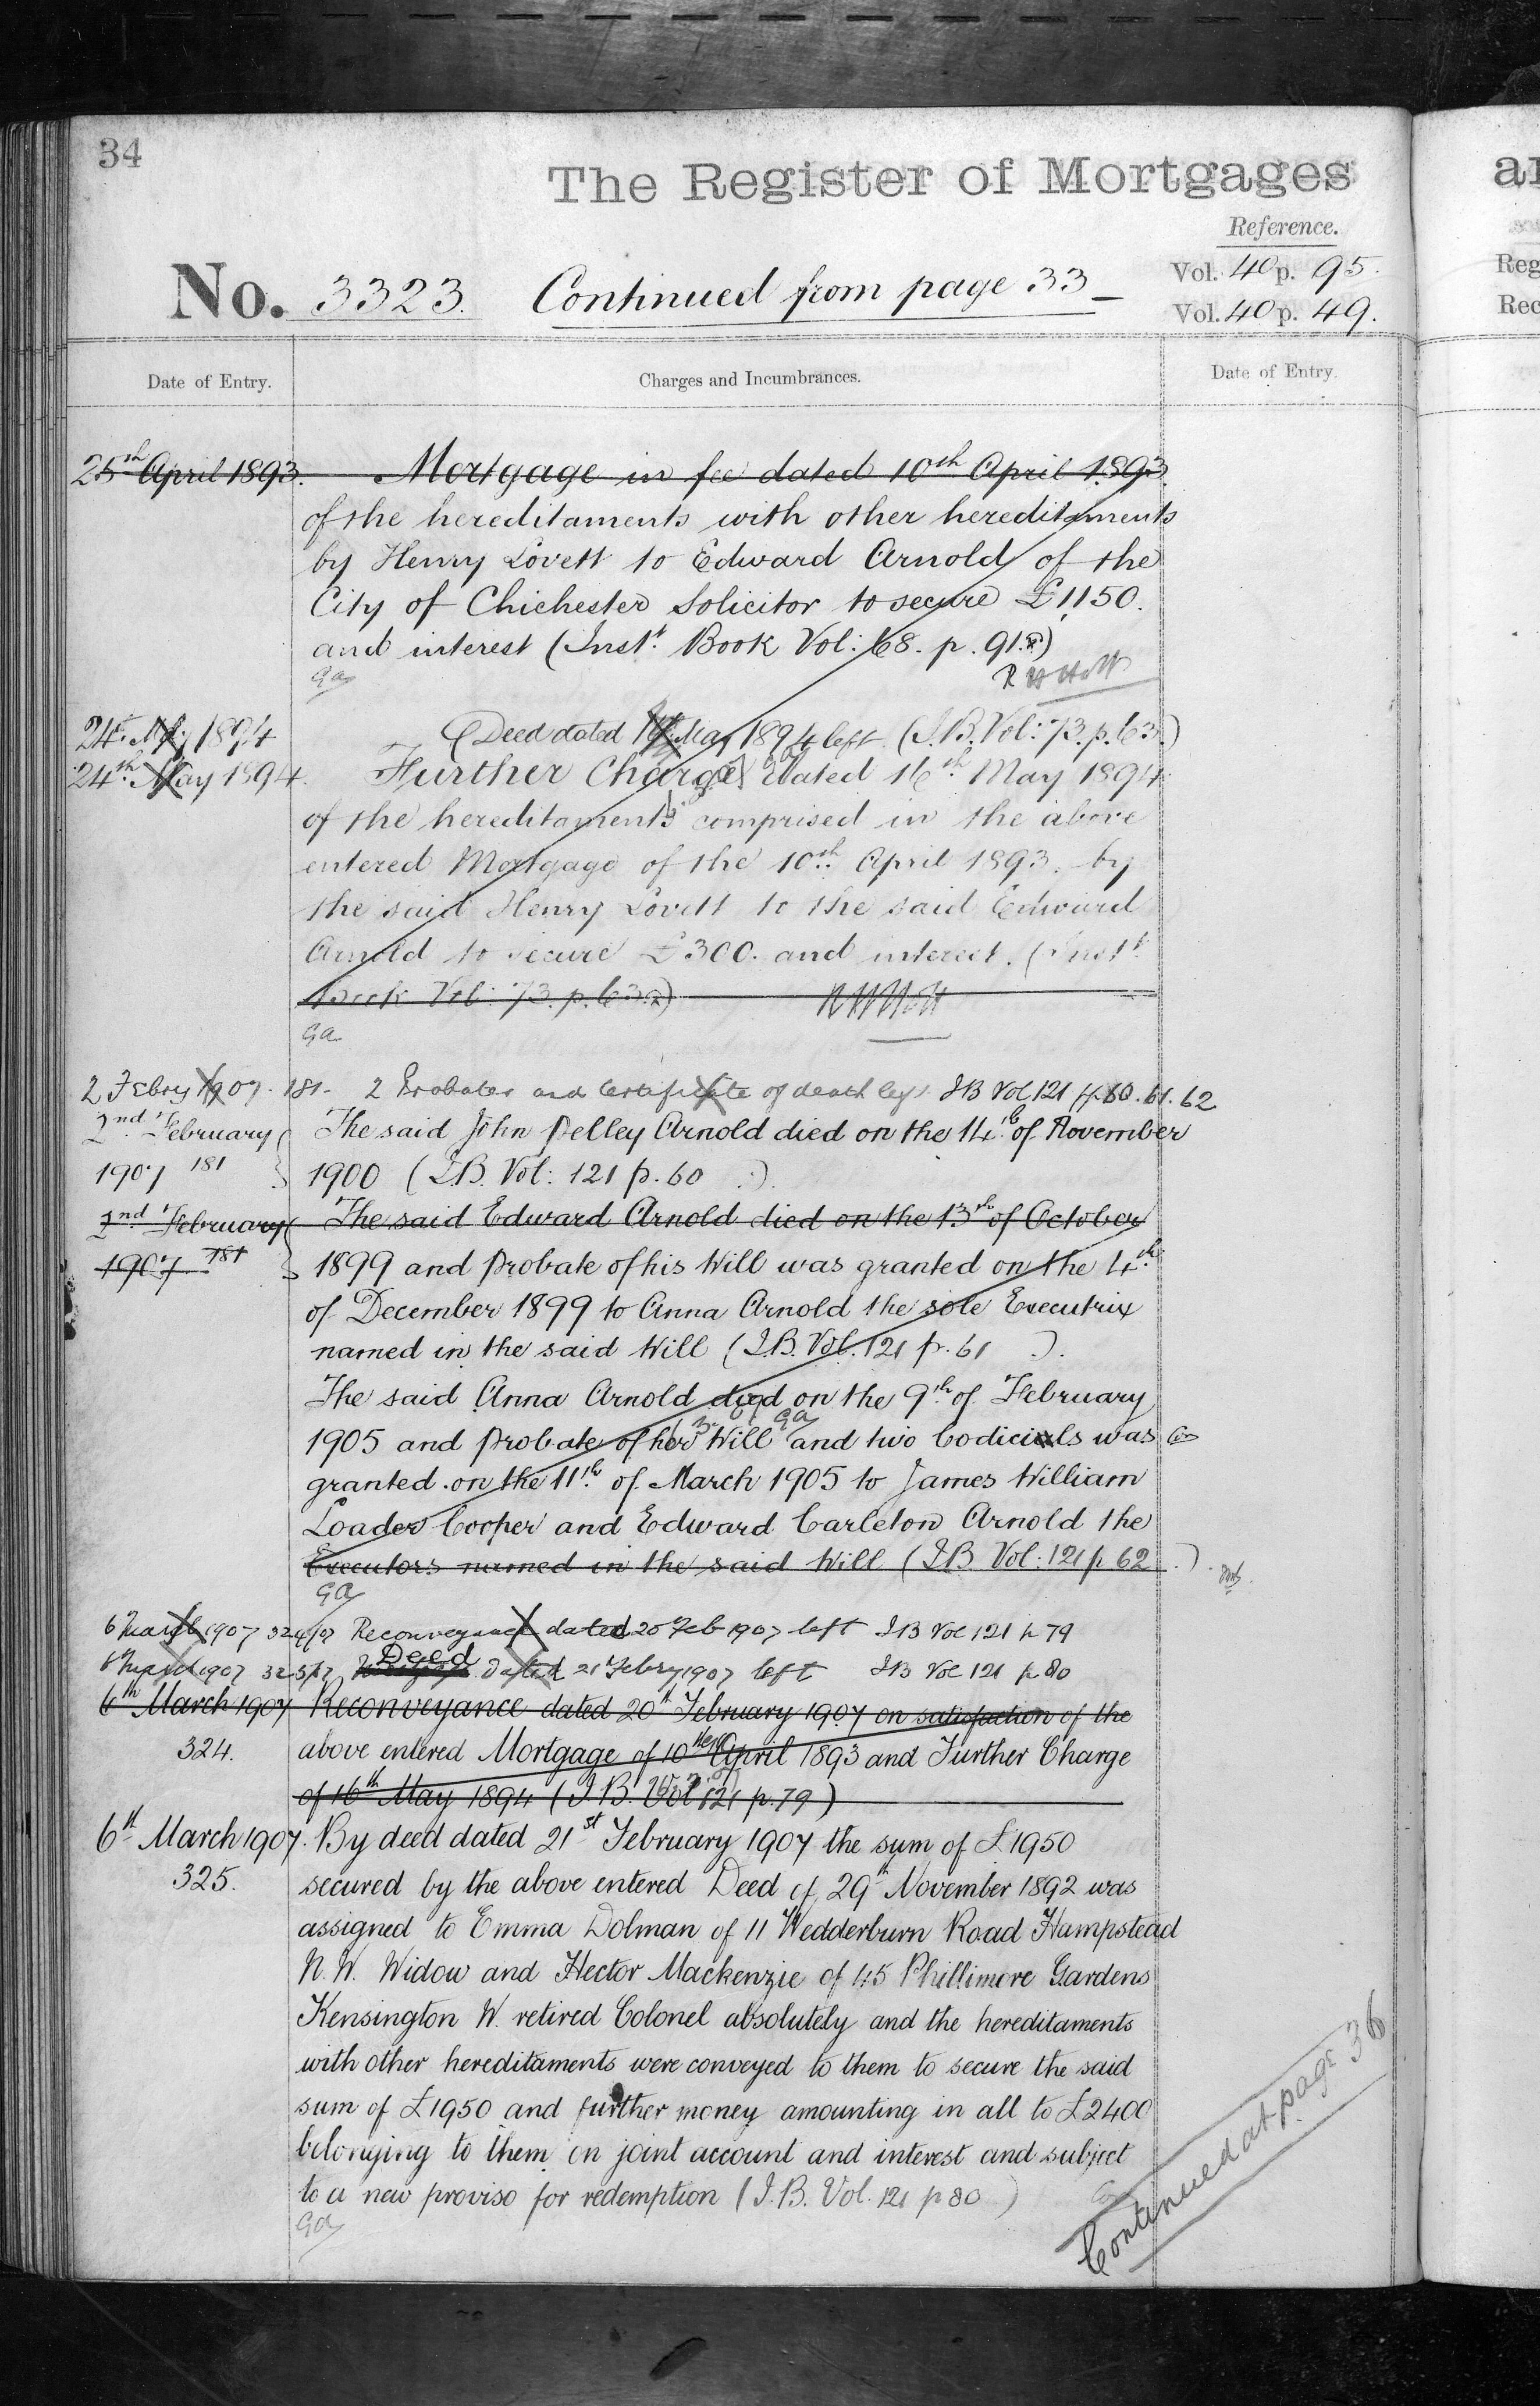 34
The Register of Mortgages
Reference.
No. 3323. Continued from page 33
Vol. 40 p. 95.
Vol. 40 p. 49.
Date of Entry.
Charges and Incumbrances.
Date of Entry.
25th April 1893. Mortgage in fee dated 10th April 1893
of the hereditaments with other hereditaments
by Henry Lovett to Edward Arnold of the
City of Chichester Solicitor to secure £1,150.
and interest (Inst. Book Vol: 68. p. 91.)
Ga
24th May 1894 (Deed dated 16th May 1894 left (I.B. Vol: 73. p. 63.)
24th May 1894. Further Charge dated 16th May 1894
of the hereditaments comprised in the above
entered Mortgage of the 10th April 1893. by
the said Henry Lovett to the said Edward
Arnold to secure £300. and interest. (Inst.
Book Vol: 73. p. 63.)
Ga
2 Febry 1907. 181. 2 Probates and Certificate of death left IB Vol 121 pp. 60. 61. 62
2nd February The said John Pelley Arnold died on the 14th of November
1907 181 1900 (I.B. Vol: 121 p. 60 ).
2nd February The said Edward Arnold died on the 13th of October
1907 181 1899 and Probate of his Will was granted on the 4th
of December 1899 to Anna Arnold the sole Executrix
named in the said Will (I.B. Vol. 121 p. 61 ).
The said Anna Arnold died on the 9th of February
1905 and Probate of her Will and two Codicils was
granted on the 11th of March 1905 to James William
Loader Cooper and Edward Carleton Arnold the
Executors named in the said Will (I.B. Vol: 121 p 62 ).
Ga
6 March 1907 324/07 Reconveyance dated 20 Feb 1907 left IB Vol 121 p 79
6 March 1907 325/07 Deed dated 21 Febry 1907 left IB Vol 121 p 80
6th March 1907 Reconveyance dated 20th February 1907 on satisfaction of the
324. above entered Mortgage of 10th April 1893 and Further Charge
of 16th May 1894 (I.B. Vol 121 p. 79)
6th March 1907. By deed dated 21st February 1907 the sum of £1950
325. secured by the above entered Deed of 29th November 1892 was
assigned to Emma Dolman of 11 Wedderburn Road Hampstead
N.W. Widow and Hector Mackenzie of 45 Phillimore Gardens
Kensington W. retired Colonel absolutely and the hereditaments
with other hereditaments were conveyed to them to secure the said
sum of £1950 and further money amounting in all to £2400
belonging to them on joint account and interest and subject
to a new proviso for redemption (I.B. Vol. 121 p 80 )
Ga
Continued at page 36
ar
Reg
Rec